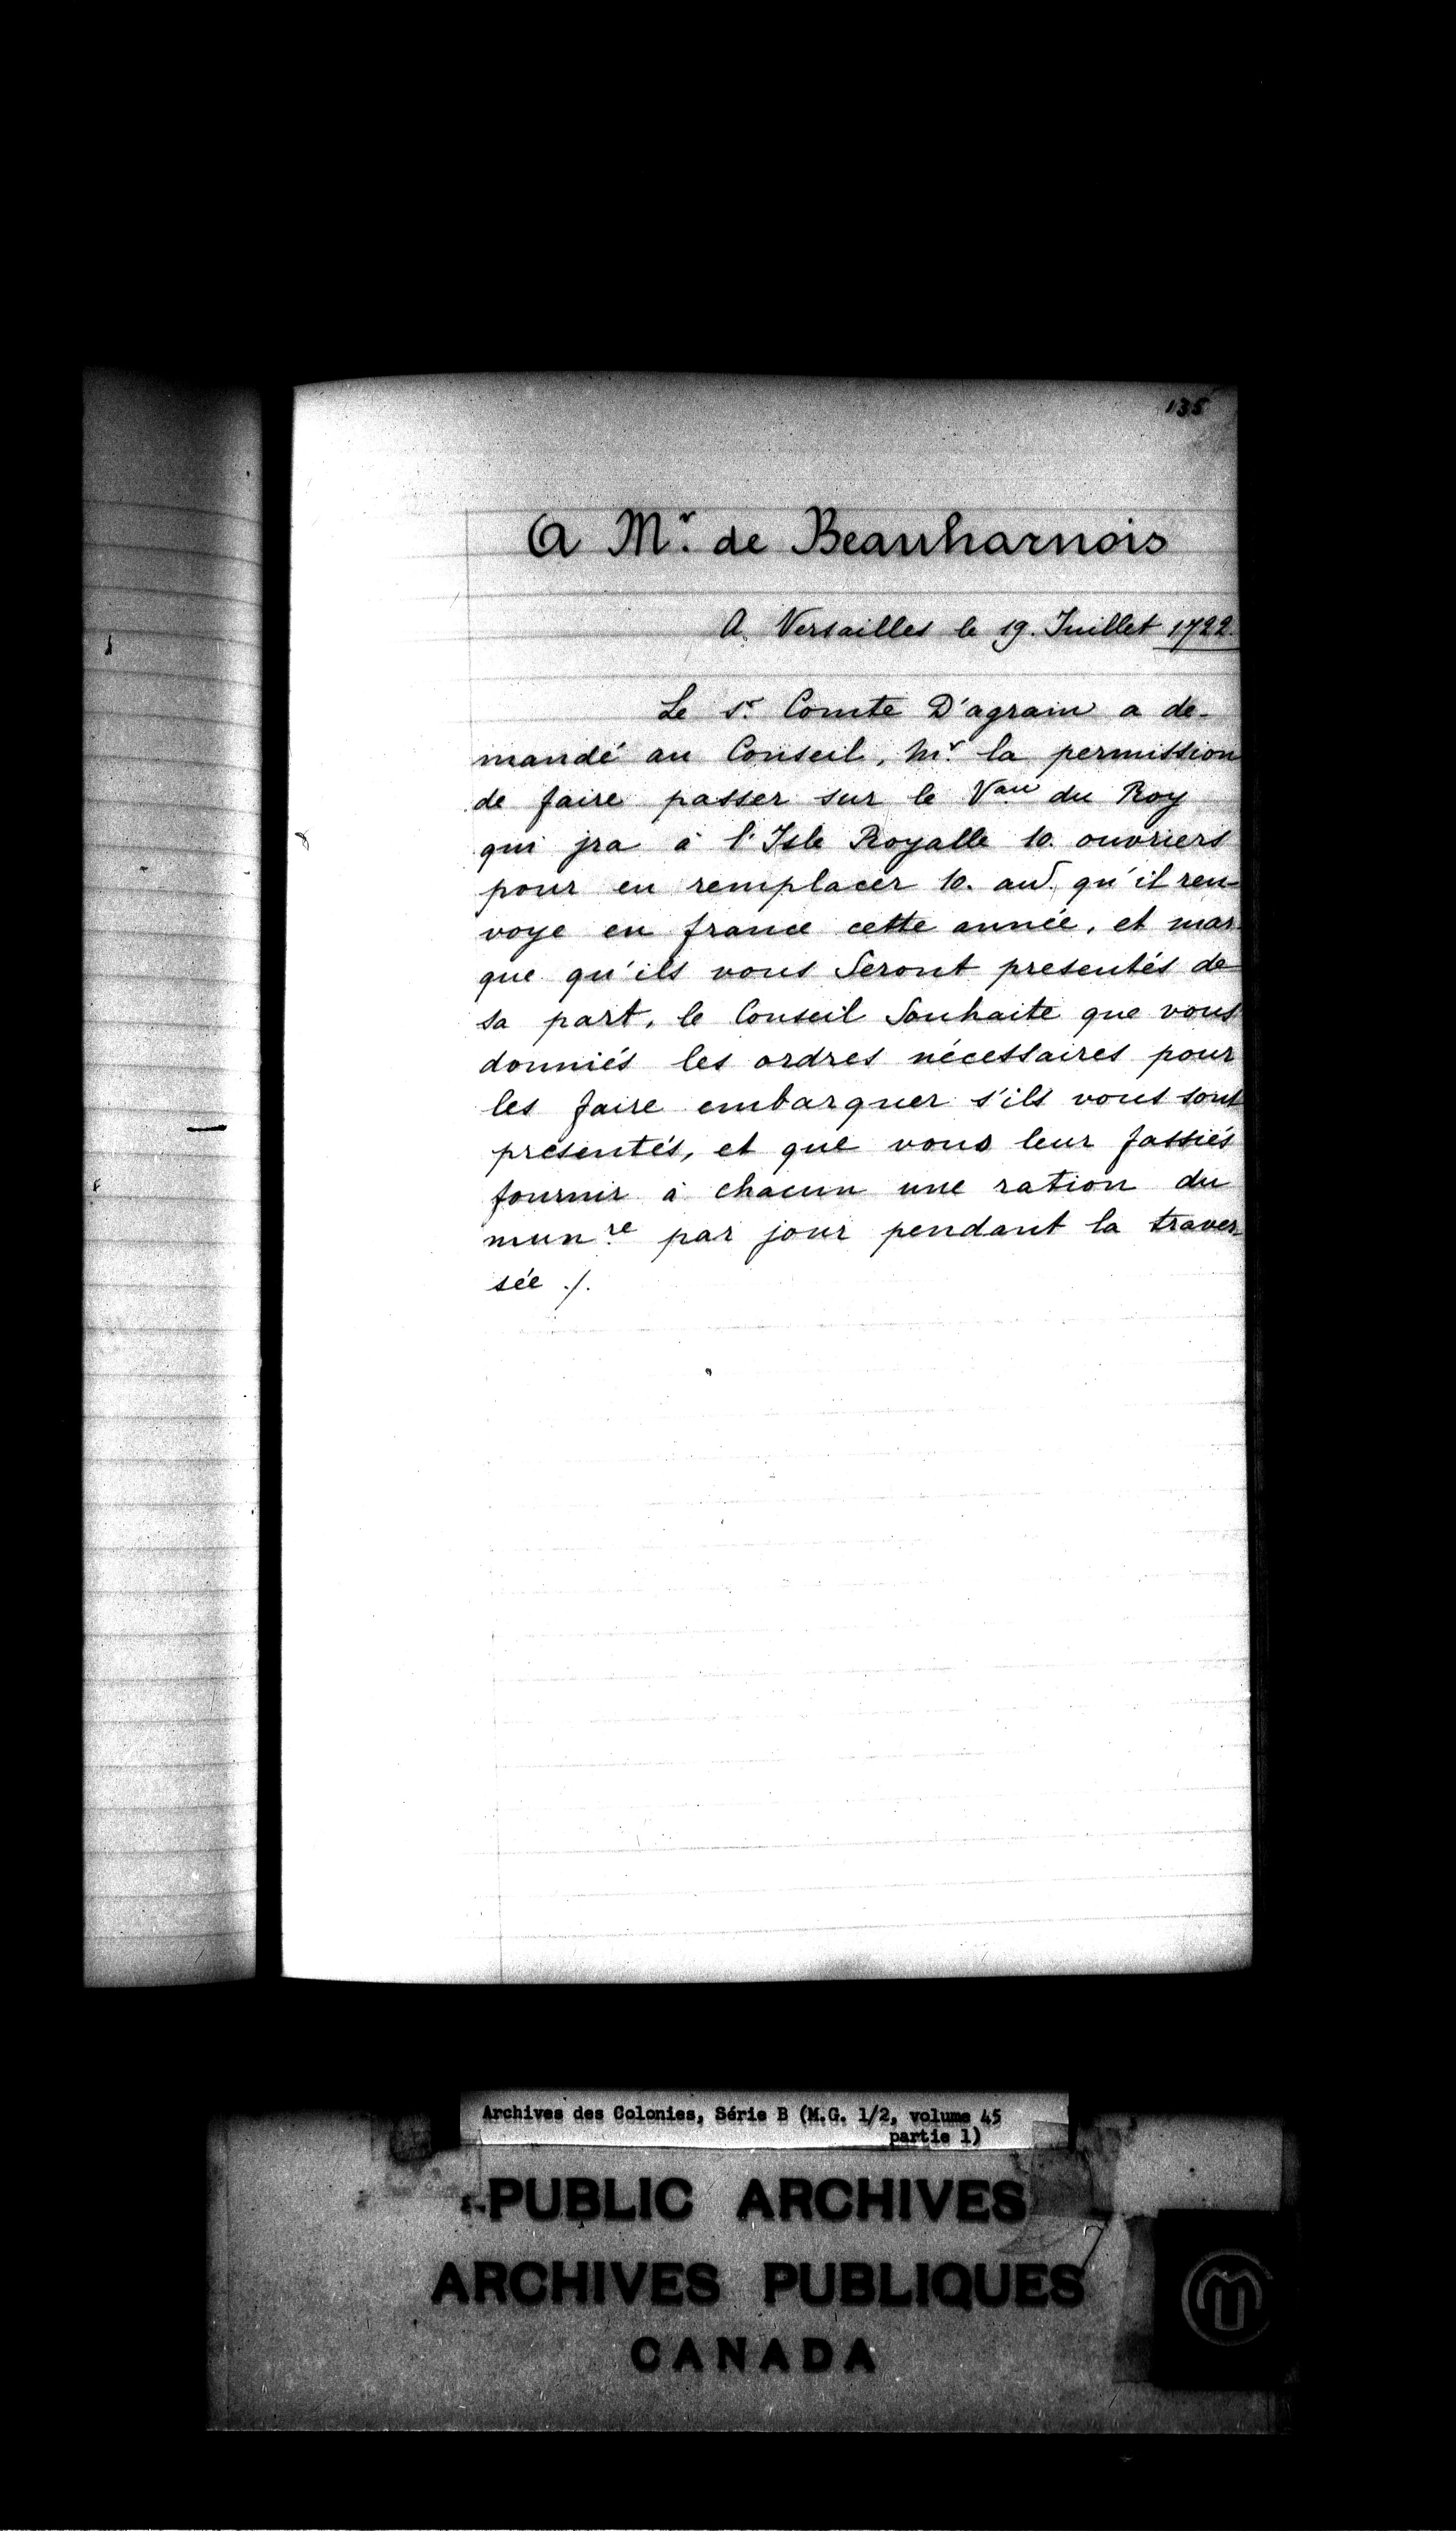 135
A Mr. de Beauharnois
A Versailles le 19. Juillet 1722.
Le sr. Comte D'agrain a de-
mandé au Conseil, Mr. la permission
de faire passer sur le Vau du Roy
qui jra à l'Isle Royalle 10. ouvriers
pour en remplacer 10. au. qu'il ren-
voye en france cette année, et mar-
que qu'ils vous Seront presentés de
sa part, le Conseil Souhaite que vous
donniés les ordres nécessaires pour
les faire embarquer s'ils vous sont
presentés, et que vous leur fassiés
fournir à chacun une ration du
munre par jour pendant la traver-
sée ./.
Archives des Colonies, Série B (M.G. 1/2, volume 45
partie 1)
PUBLIC ARCHIVES
ARCHIVES PUBLIQUES
CANADA